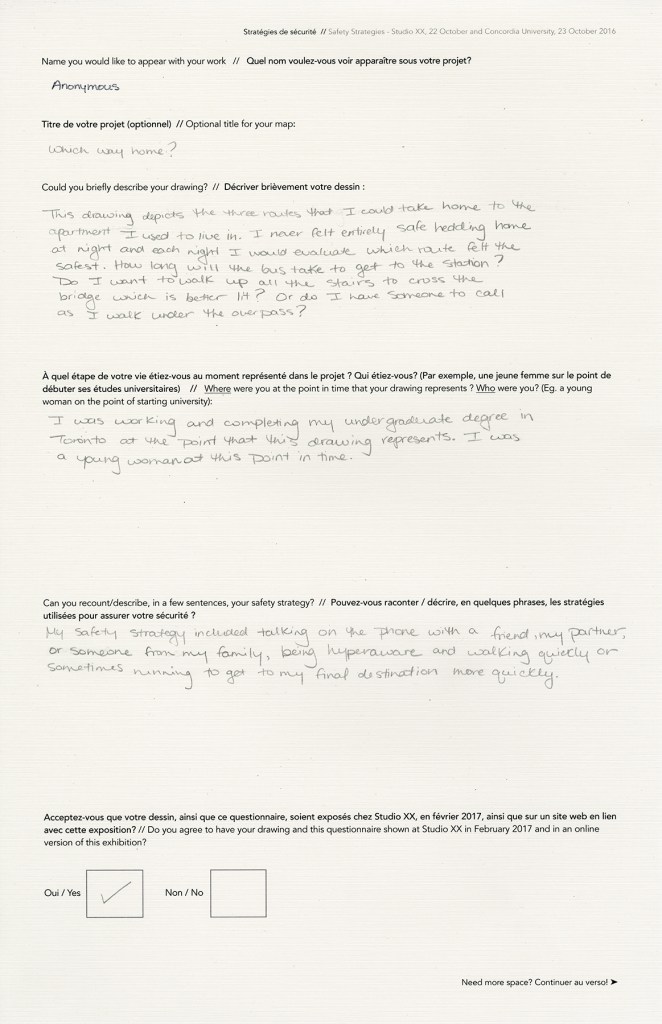 Stratégies de sécurité // Safety Strategies - Studio XX, 22 October and Concordia University, 23 October 2016
Name you would like to appear with your work // Quel nom voulez-vous voir apparaître sous votre projet?
Anonymous
Titre de votre projet (optionnel) // Optional title for your map:
Which way home?
Could you briefly describe your drawing? // Décriver brièvement votre dessin :
This drawing depicts the three routes that I could take home to the
apartment I used to live in. I never felt entirely safe hedding home
at night and each night I would evaluate which route felt the
safest. How long will the bus take to get to the station?
Do I want to walk up all the stairs to cross the
bridge which is better lit? Or do I have someone to call
as I walk under the overpass?
À quel étape de votre vie étiez-vous au moment représenté dans le projet ? Qui étiez-vous? (Par exemple, une jeune femme sur le point de
débuter ses études universitaires) // Where were you at the point in time that your drawing represents ? Who were you? (Eg. a young
woman on the point of starting university):
I was working and completing my undergraduate degree in
Toronto at the point that this drawing represents. I was
a young woman at this point in time.
Can you recount/describe, in a few sentences, your safety strategy? // Pouvez-vous raconter / décrire, en quelques phrases, les stratégies
utilisées pour assurer votre sécurité ?
My safety strategy included talking on the phone with a friend, my partner,
or someone from my family, being hyperaware and walking quickly or
sometimes running to get to my final destination more quickly.
Acceptez-vous que votre dessin, ainsi que ce questionnaire, soient exposés chez Studio XX, en février 2017, ainsi que sur un site web en lien
avec cette exposition? // Do you agree to have your drawing and this questionnaire shown at Studio XX in February 2017 and in an online
version of this exhibition?
Oui / Yes ✓ Non / No
Need more space? Continuer au verso! ➤